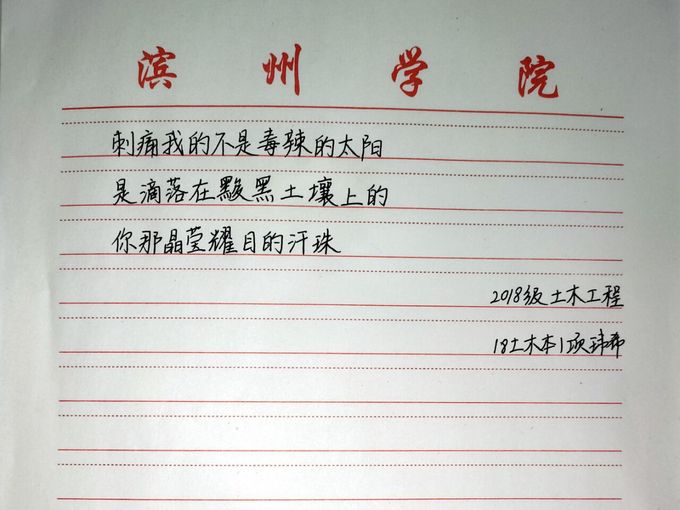 滨州学院
刺痛我的不是毒辣的太阳
是滴落在黢黑土壤上的
你那晶莹耀目的汗珠
2018级土木工程
18土木本1项玮希